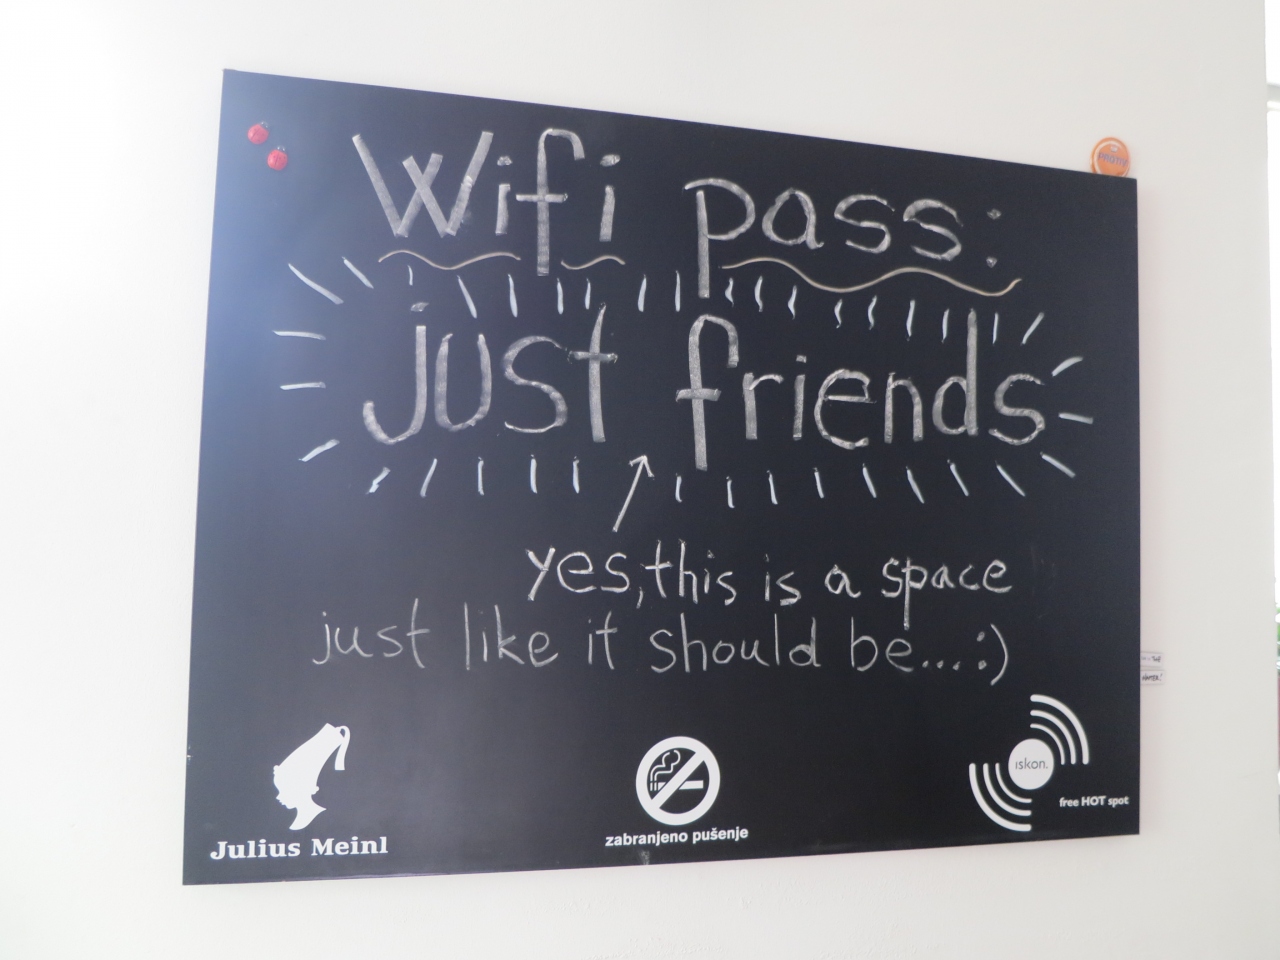 Wifi pass:
just friends
yes, this is a space
just like it should be...:)
Julius Meinl
zabranjeno pušenje
iskon.
free HOT spot